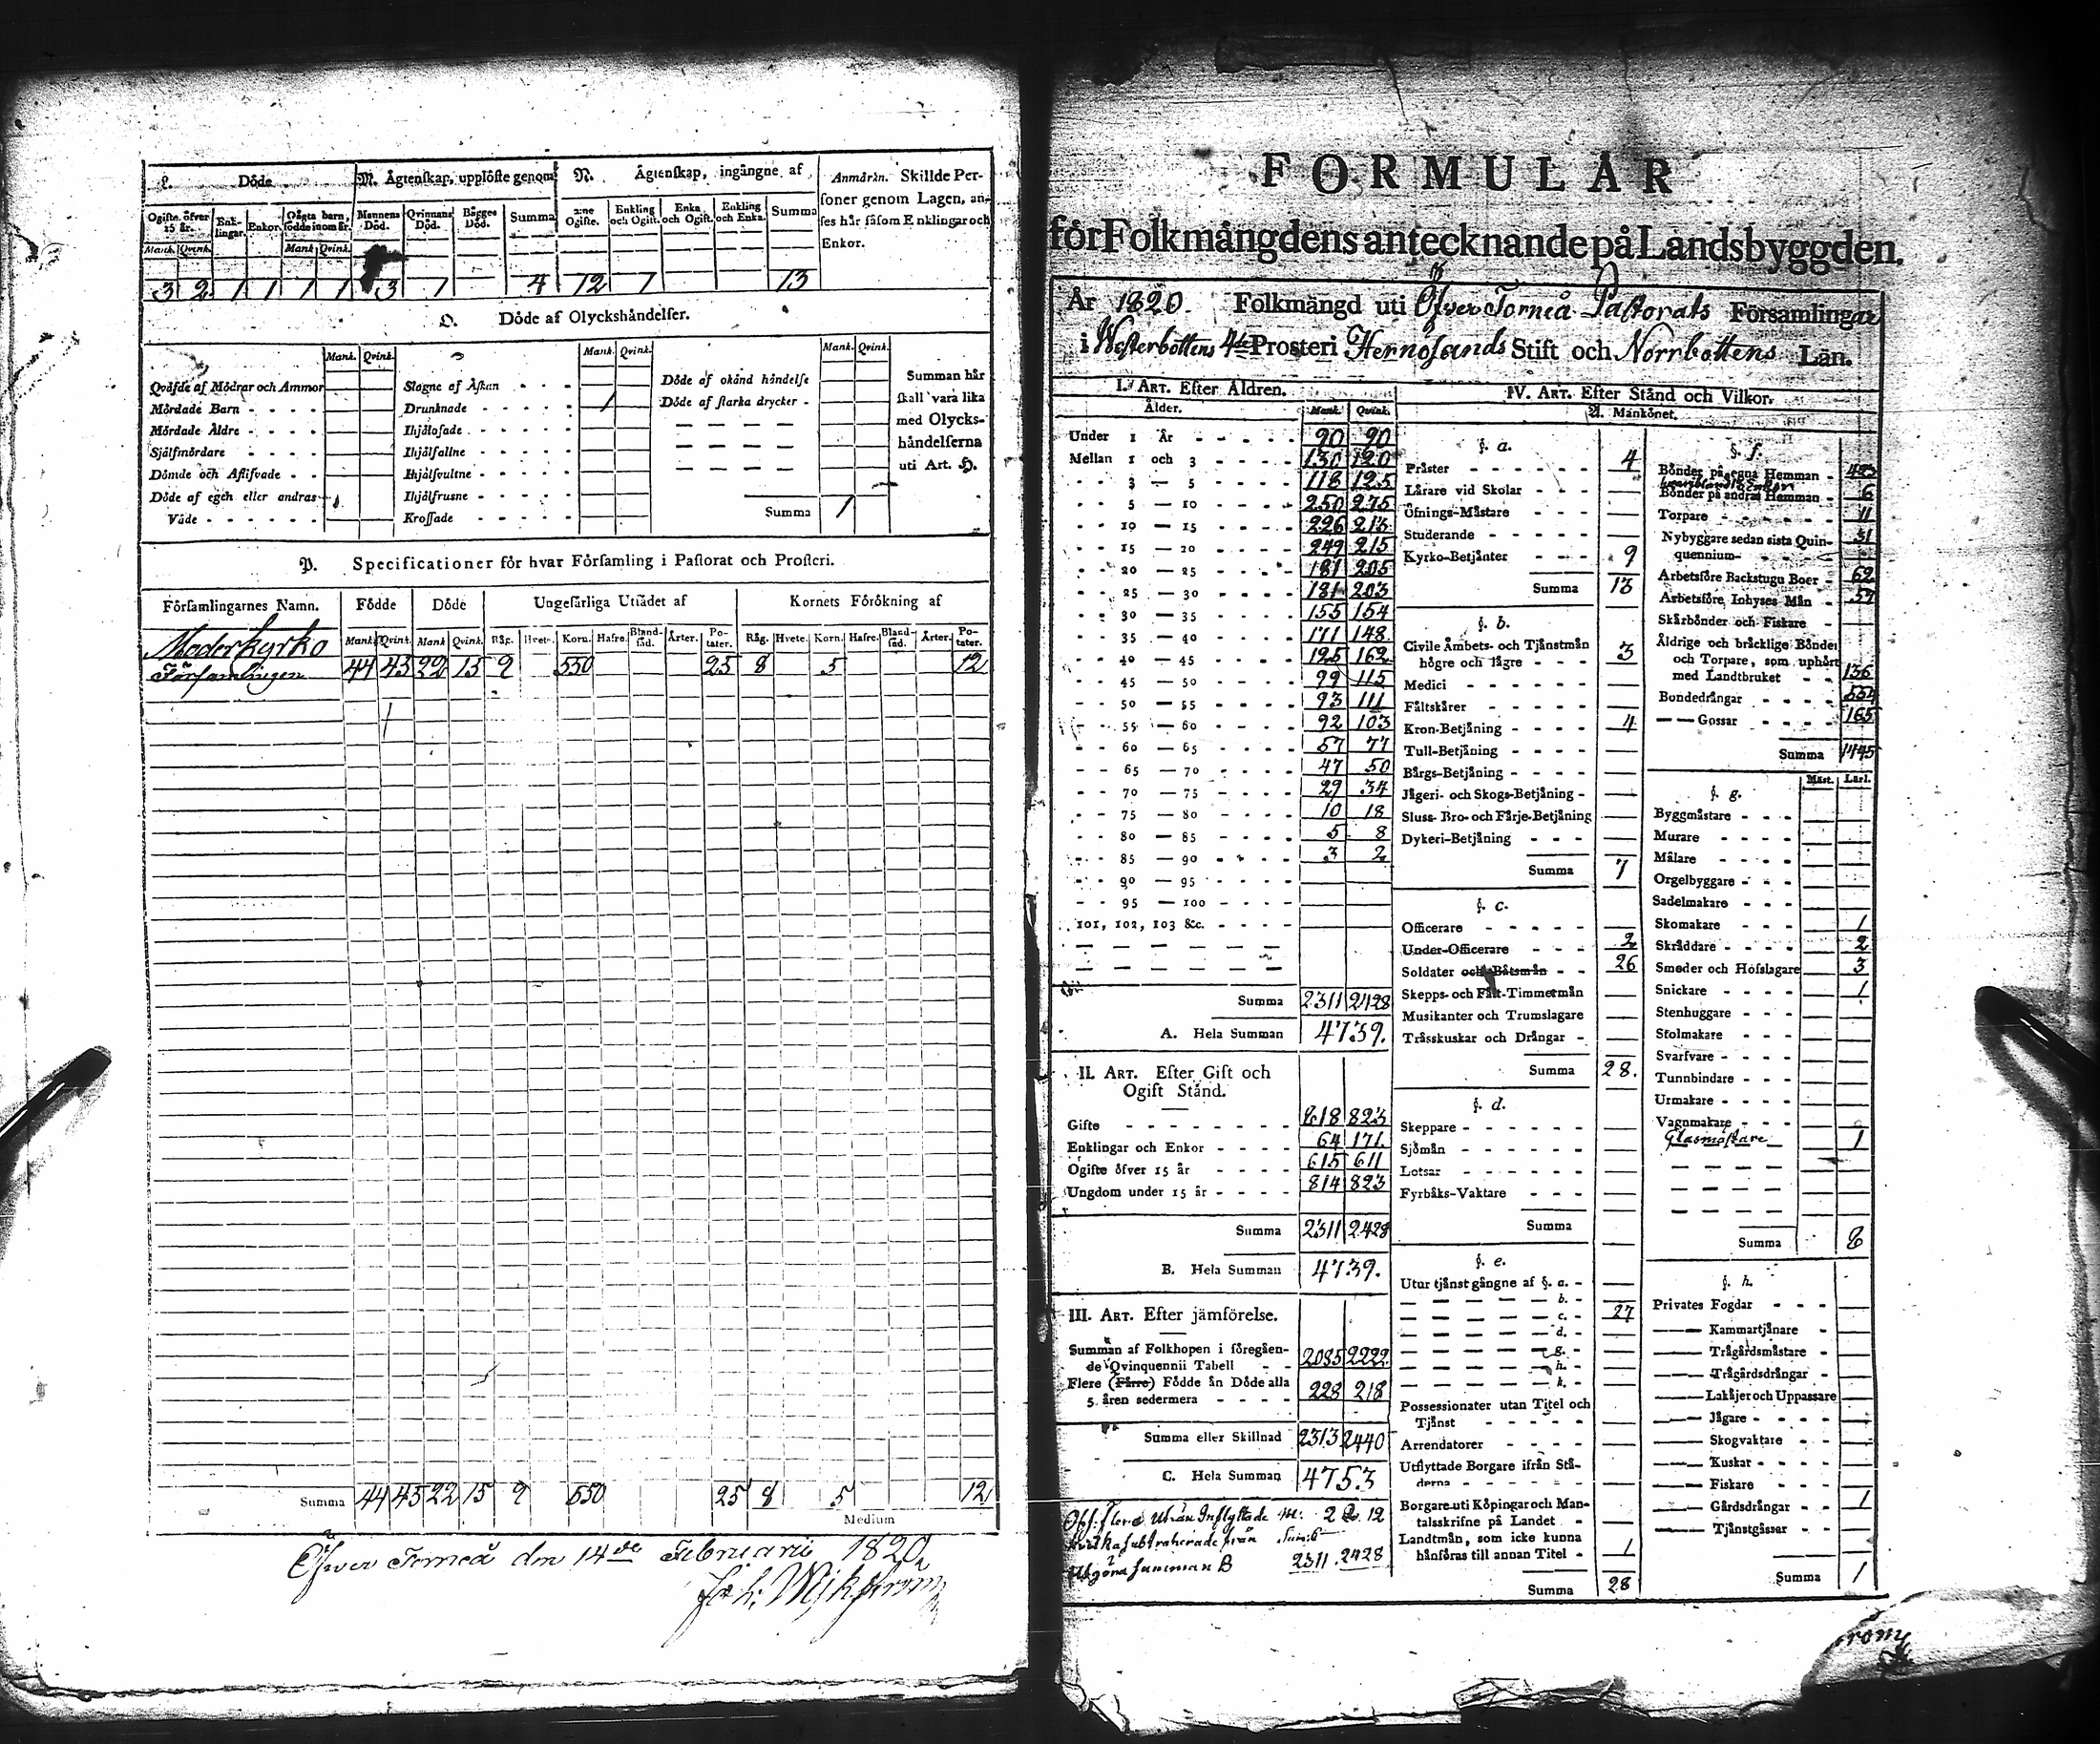 L. Döde.
M. Ägtenskap, upplöste genom
N. Ägtenskap, ingångne af
Anmärkn. Skillde Per-
soner genom Lagen, an-
ses här såsom Enklingar och
Enkor.
Ogifte öfver 15 år. Enk- lingar. Enkor. Oägta barn, födde inom år. Mannens Död. Qvinnans Död. Bägges Död. Summa Ogifte. Enkling och Ogift. Enka och Ogift. Enkling och Enka. Summa
Mank. Qvink. Mank. Qvink.
3 2 1 1 1 1 3 1 4 12 1 13
O. Döde af Olyckshändelser.
Mank. Qvink. Mank. Qvink. Mank. Qvink.
Qväfde af Mödrar och Ammor
Mördade Barn
Mördade Äldre
Självmördare
Dömde och Aflifvade
Döde af egen eller andras
Våde
Slagne af Åskan
Drunknade 1
Ihjälosade
Ihjälfallne
Ihjälsvultne
Ihjälfrusne
Krossade
Döde af okänd händelse
Döde af starka drycker
Summa 1
Summan här
skall vara lika
med Olycks-
händelserna
uti Art. H.
P. Specificationer för hvar Församling i Pastorat och Prosteri.
Församlingarnes Namn. Födde Döde Ungefärliga Utsädet af Kornets Förökning af
Mank. Qvink. Mank. Qvink. Råg. Hvete. Korn. Hafre. Bland- säd. Ärter. Po- tater. Råg. Hvete. Korn. Hafre. Bland- säd. Ärter. Po- tater.
Moderkyrko
Församlingen 44 43 22 15 9 550 25 8 5 12
Summa 44 43 22 15 9 550 25 8 5 12
Medium
Öfver Torneå den 14de Februarii 1820
Joh: Wijkström
FORMULÄR
för Folkmängdens antecknande på Landsbyggden.
År 1820. Folkmängd uti Öfver Torneå Pastorats Församlingar
i Westerbottens 4de Prosteri Hernosands Stift och Norrbottens Län.
I. Art. Efter Åldren.
Ålder. Mank. Qvink.
Under 1 År 90 90
Mellan 1 och 3 130 120
3 — 5 118 125
5 — 10 250 275
10 — 15 226 213
15 — 20 249 215
20 — 25 181 205
25 — 30 181 203
30 — 35 155 154
35 — 40 171 148
40 — 45 125 162
45 — 50 99 115
50 — 55 93 111
55 — 60 92 103
60 — 65 57 77
65 — 70 47 50
70 — 75 29 34
75 — 80 10 18
80 — 85 5 8
85 — 90 3 2
90 — 95
95 — 100
101, 102, 103 &c.
Summa 2311 2428
A. Hela Summan 4739.
II. Art. Efter Gift och
Ogift Stånd.
Gifte 818 823
Enklingar och Enkor 64 171
Ogifte öfver 15 år 615 611
Ungdom under 15 år 814 823
Summa 2311 2428
B. Hela Summan 4739.
III. Art. Efter jämförelse.
Summan af Folkhopen i föregåen-
de Qvinquennii Tabell 2085 2222
Flere (Färre) Födde än Döde alla
5 åren sedermera 228 218
Summa eller Skillnad 2313 2440
C. Hela Summan 4753
Obs: flere Utän Inflyttade 2 12
subtraherade från
Utgöra summan B 2311 2428
IV. Art. Efter Stånd och Vilkor.
A. Mankönet.
§. a.
Präster 4
Lärare vid Skolar
Öfnings-Mästare
Studerande
Kyrko-Betjänter 9
Summa 13
§. b.
Civile Ämbets- och Tjänstmän
högre och lägre 3
Medici
Fältskärer
Kron-Betjäning 4
Tull-Betjäning
Bärgs-Betjäning
Jägeri- och Skogs-Betjäning
Sluss- Bro- och Färje-Betjäning
Dykeri-Betjäning
Summa 7
§. c.
Officerare
Under-Officerare 2
Soldater och Båtsmän 26
Skepps- och Fält-Timmermän
Musikanter och Trumslagare
Trässkuskar och Drängar
Summa 28.
§. d.
Skeppare
Sjömän
Lotsar
Fyrbåks-Vaktare
Summa
§. e.
Utur tjänst gångne af §. a.
b.
c. 27
d.
g.
h.
k.
Possessionater utan Titel och
Tjänst
Arrendatorer
Utflyttade Borgare ifrån Stä-
derna
Borgare uti Köpingar och Man-
talsskrifne på Landet
Landtmän, som icke kunna
hänföras till annan Titel 1
Summa 28
§. f.
Bönder på egna Hemman
Bönder på andras Hemman 6
Torpare 11
Nybyggare sedan sista Quin-
quennium 31
Arbetsföre Backstugu Boer 62
Arbetsföre Inhyses Män 57
Skärbönder och Fiskare
Äldrige och bräcklige Bönder
och Torpare, som uphört
med Landtbruket 136
Bondedrängar 554
— Gossar 165
Summa 1445
§. g.
Mäst. Lärl.
Byggmästare
Murare
Målare
Orgelbyggare
Sadelmakare
Skomakare 1
Skräddare 2
Smeder och Hofslagare 3
Snickare 1
Stenhuggare
Stolmakare
Svarfvare
Tunnbindare
Urmakare
Vagnmakare
Glasmästare 1
Summa 8
§. h.
Privates Fogdar
— Kammartjänare
— Trägårdsmästare
— Trägårdsdrängar
— Lakäjer och Uppassare
— Jägare
— Skogvaktare
— Kuskar
— Fiskare
— Gårdsdrängar 1
— Tjänstgåssar
Summa 1